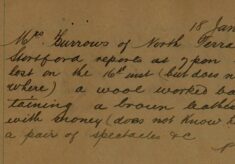 18 Jan
Mrs Burrows of North Terra
Stortford reports at 7 pm
lost on the 16th inst (but does n
where) a wool worked ba
taining a brown leathe
with money (does not know h
a pair of spectacles &c